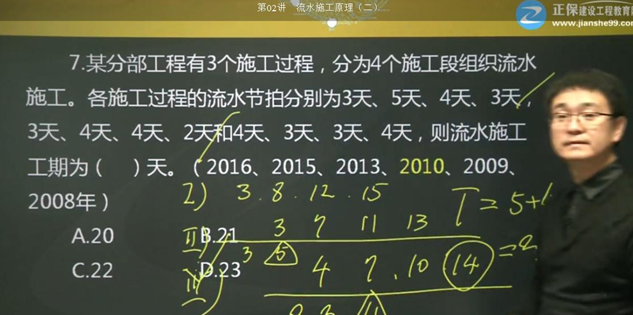 第02讲 流水施工原理（二）
正保建设工程教育网
www.jianshe99.c
7.某分部工程有3个施工过程，分为4个施工段组织流水
施工。各施工过程的流水节拍分别为3天、5天、4天、3天，
3天、4天、4天、2天和4天、3天、3天、4天，则流水施工
工期为（ ）天。（2016、2015、2013、2010、2009、
2008年）
I) 3.8.12.15
T=5+
A.20 II B.21 3 7 11 13
3 5
C.22 III D.23 4 7.10 14 =